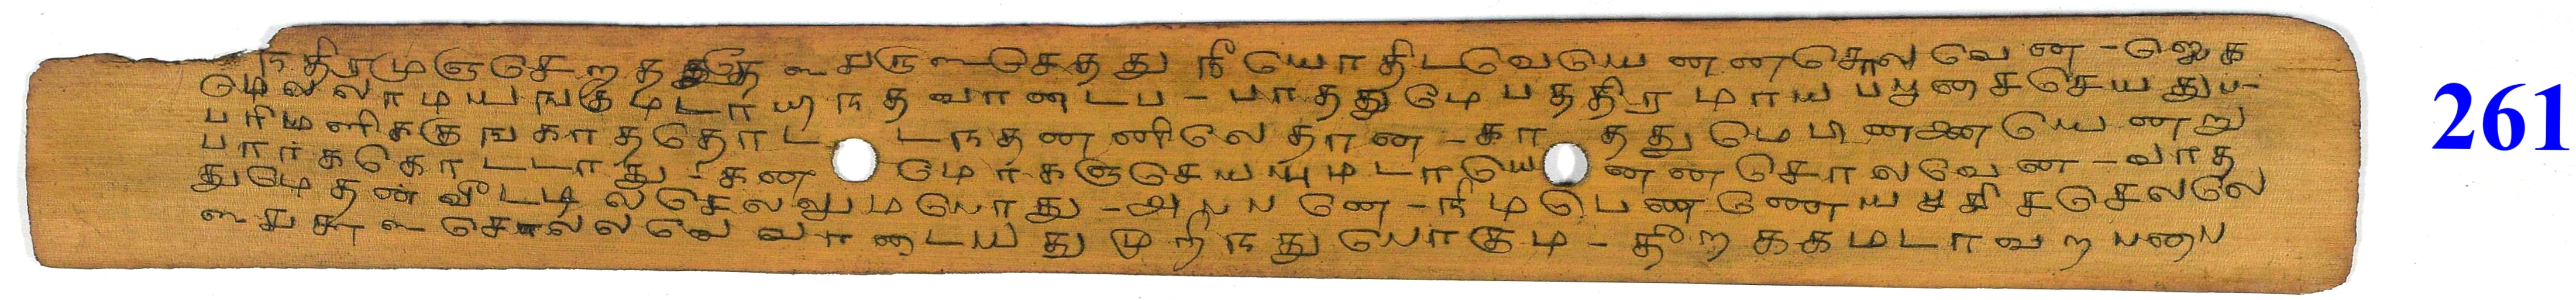 ந்திரமுஞசெறத ௨சரு௨செதது நீயொதிடவெயெனனசொலவென - ஜெக
மெல்லாமயஙகுமடாயிநதவானடப - பாதது மெபததிரமாயபபூனசசெயதுப -
பரிமளிககுஙகாததொட டநதணணிலெதான - காதது மெபிணனையெனறு
பார்ககொடடாது - கண மொர்களுசெயயுமடாயெனனசொலவென - வாத
துமெதன்வீடடிலசெலலுமபொது - அபபனெ - நிமபெணணெயபூசிசசெலலெ
௨சுசு௨சொல்லவெவானடயதுமுறிநதுபொகும - தீறககமடாவறபனைப
261